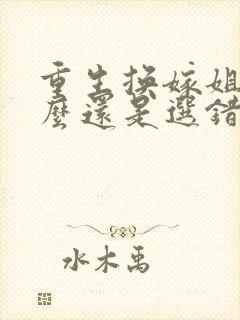 重生換嫁姐
麼還是選錯
水木禹